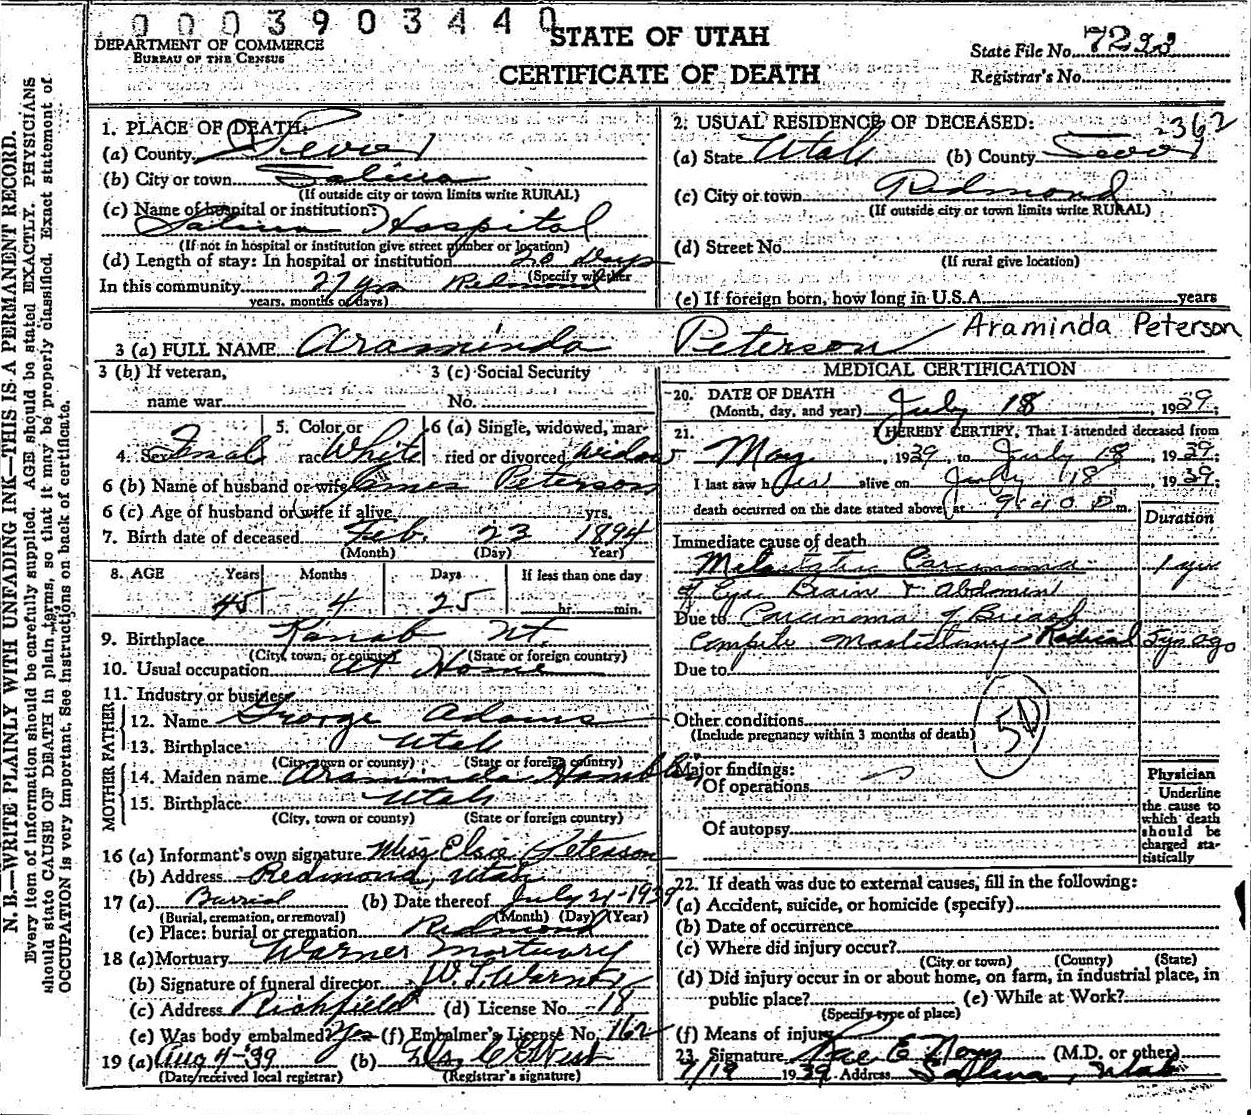 0003903440
DEPARTMENT OF COMMERCE
BUREAU OF THE CENSUS
STATE OF UTAH
CERTIFICATE OF DEATH
State File No. 7293
Registrar's No.
N. B.—WRITE PLAINLY WITH UNFADING INK—THIS IS A PERMANENT RECORD.
Every item of information should be carefully supplied. AGE should be stated EXACTLY. PHYSICIANS
should state CAUSE OF DEATH in plain terms, so that it may be properly classified. Exact statement of
OCCUPATION is very important. See instructions on back of certificate.
1. PLACE OF DEATH:
(a) County Sevier
(b) City or town Salina
(If outside city or town limits write RURAL)
(c) Name of hospital or institution:
Salina Hospital
(If not in hospital or institution give street number or location)
(d) Length of stay: In hospital or institution 20 Days
(Specify whether
In this community 27 yrs Redmond
years, months or days)
2. USUAL RESIDENCE OF DECEASED: 362
(a) State Utah (b) County Sevier
(c) City or town Redmond
(If outside city or town limits write RURAL)
(d) Street No.
(If rural give location)
(e) If foreign born, how long in U.S.A. years
3 (a) FULL NAME Araminda Peterson Araminda Peterson
3 (b) If veteran,
name war
3 (c) Social Security
No.
4. Sex Femal 5. Color or race White 6 (a) Single, widowed, married or divorced Widow
6 (b) Name of husband or wife James Peterson
6 (c) Age of husband or wife if alive yrs.
7. Birth date of deceased Feb. 23 1894
(Month) (Day) Year)
8. AGE Years Months Days If less than one day
45 4 25 hr. min.
9. Birthplace Kanab Ut
(City, town, or county) (State or foreign country)
10. Usual occupation At Home
11. Industry or business
FATHER
12. Name George Adams
13. Birthplace Utah
(City, town or county) (State or foreign country)
MOTHER
14. Maiden name Araminda Hamblin
15. Birthplace Utah
(City, town or county) (State or foreign country)
16 (a) Informant's own signature Miss Elsie Peterson
(b) Address Redmond, Utah
17 (a) Burrial (b) Date thereof July 21-1939
(Burial, cremation, or removal) (Month) (Day) (Year)
(c) Place: burial or cremation Redmond
18 (a) Mortuary Warner Mortuary
(b) Signature of funeral director W. S. Warner
(c) Address Richfield (d) License No. 18
(e) Was body embalmed? Yes (f) Embalmer's License No. 162
19 (a) Aug 4-39 (b) West
(Date received local registrar) (Registrar's signature)
MEDICAL CERTIFICATION
20. DATE OF DEATH
(Month, day, and year) July 18, 1939;
21. I HEREBY CERTIFY, That I attended deceased from
May, 1939, to July 18, 1939;
I last saw her alive on July 18, 1939;
death occurred on the date stated above, at 9:40 P m.
Duration
Immediate cause of death
Metastatic Carcinoma 1 yr
of Eye Brain & Abdomin
Due to Carcinoma of Breast
Complete Mastectomy Radical 5 yr ago
Due to
Other conditions
(Include pregnancy within 3 months of death)
50
Major findings:
Of operations
Of autopsy
Physician
Underline
the cause to
which death
should be
charged sta-
tistically
22. If death was due to external causes, fill in the following:
(a) Accident, suicide, or homicide (specify)
(b) Date of occurrence
(c) Where did injury occur?
(City or town) (County) (State)
(d) Did injury occur in or about home, on farm, in industrial place, in
public place? (e) While at Work?
(Specify type of place)
(f) Means of injury
23. Signature Rae E Noyes (M.D. or other)
7/19 1939 Address Salina, Utah